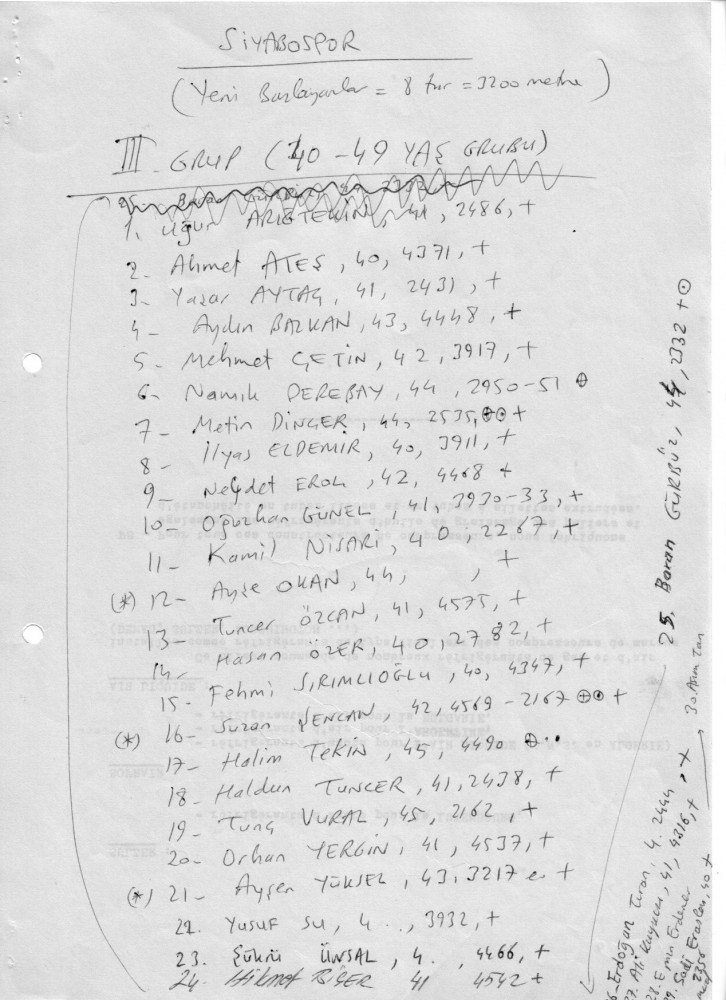 SİYABOSPOR
(Yeni Başlayanlar = 8 tur = 3200 metre)
III. GRUP (40-49 YAŞ GRUBU)
1. Uğur ARIGTEKİN, 41, 2486, +
2- Ahmet ATEŞ, 40, 4371, +
3- Yaşar AYTAÇ, 41, 2431, +
4- Aydın BALKAN, 43, 4448, +
5- Mehmet ÇETİN, 42, 3917, +
6- Namık DEREBAY, 44, 2950-51 ⊕
7- Metin DİNÇER, 44, 2535, ⊕⊕ +
8- İlyas ELDEMİR, 40, 3911, +
9- Nejdet EROL, 42, 4468 +
10- Oğuzhan GÜNEL, 41, 3930-33, +
11- Kamil NİSARİ, 40, 2267, +
(*) 12- Ayşe OKAN, 44, , +
13- Tuncer ÖZCAN, 41, 4575, +
14- Hasan ÖZER, 40, 2782, +
15- Fehmi SIRIMLIOĞLU, 40, 4347, +
(*) 16- Suzan ŞENCAN, 42, 4569-2167 ⊕⊕ +
17- Halim TEKİN, 45, 4490 ⊕..
18- Haldun TUNCER, 41, 2438, +
19- Tunç VURAL, 45, 2162, +
20- Orhan YERGİN, 41, 4537, +
(*) 21- Ayşen YÜKSEL, 43, 3217 +
22. Yusuf SU, 4.., 3932, +
23. Şükrü ÜNSAL, 4., 4466, +
24- Hikmet BİÇER 41 4542 +
25. Baran GÜRBÜZ, 44, 2332 + ⊙
Erdoğan Turan, 4. 2444, +
7. Ali Kuyucu, 41, 4316, +
28. Emin Erdener
Sadi Eraslan, 40 +
2356
30. Asım Tan